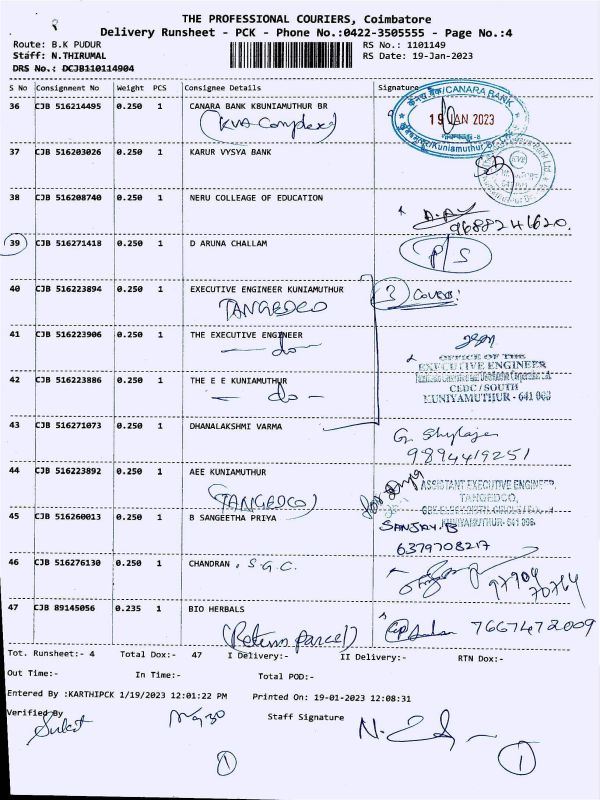 THE PROFESSIONAL COURIERS, Coimbatore
Delivery Runsheet - PCK - Phone No.:0422-3505555 - Page No.:4
Route: B.K PUDUR RS No.: 1101149
Staff: N.THIRUMAL RS Date: 19-Jan-2023
DRS No.: DCJB110114904
S No Consignment No Weight PCS Consignee Details Signature
36 CJB 516214495 0.250 1 CANARA BANK KBUNIAMUTHUR BR
(KVA Complex)
CANARA BANK
19 JAN 2023
Kuniamuthur
37 CJB 516203026 0.250 1 KARUR VYSYA BANK
38 CJB 516208740 0.250 1 NERU COLLEAGE OF EDUCATION
9688241620.
39 CJB 516271418 0.250 1 D ARUNA CHALLAM P/S
40 CJB 516223894 0.250 1 EXECUTIVE ENGINEER KUNIAMUTHUR 3 Covers!
TANGEDCO
41 CJB 516223906 0.250 1 THE EXECUTIVE ENGINEER
— do —
OFFICE OF THE
EXECUTIVE ENGINEER
42 CJB 516223886 0.250 1 THE E E KUNIAMUTHUR
— do —
CEDC / SOUTH
KUNIYAMUTHUR - 641 008
43 CJB 516271073 0.250 1 DHANALAKSHMI VARMA
9894419251
44 CJB 516223892 0.250 1 AEE KUNIAMUTHUR
(TANGEDCO)
ASSISTANT EXECUTIVE ENGINEER,
TANGEDCO,
KUNIYAMUTHUR- 641 008
45 CJB 516260013 0.250 1 B SANGEETHA PRIYA SANJAY.B
6379708217
46 CJB 516276130 0.250 1 CHANDRAN , S.G.C.
97904
70764
47 CJB 89145056 0.235 1 BIO HERBALS
(Return parcel) 7667472009
Tot. Runsheet:- 4 Total Dox:- 47 I Delivery:- II Delivery:- RTN Dox:-
Out Time:- In Time:- Total POD:-
Entered By :KARTHIPCK 1/19/2023 12:01:22 PM Printed On: 19-01-2023 12:08:31
Verified By Staff Signature
1 1